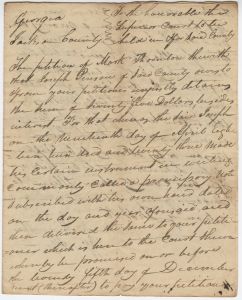 Georgia To the honorable the
Superior Court to be
Jackson County held in & for said County
The petition of Mark Thornton sheweth
that Joseph of said County owes to
your petitioner unjustly detains
the sum of twenty five Dollars besides
interest. For that whereas the said Joseph
on the Nineteenth day of April Eigh
teen hundred and twenty three Made
his Certain instrument in writing
Commonly Called a promissory Note
subscribed with his own hand dated
on the day and year aforesaid and
then delivered the same to your petiti
oner which is here to the Court shewn
whereby he promised on or before
the twenty fifth day of December
next (thereafter) to pay your petitioner